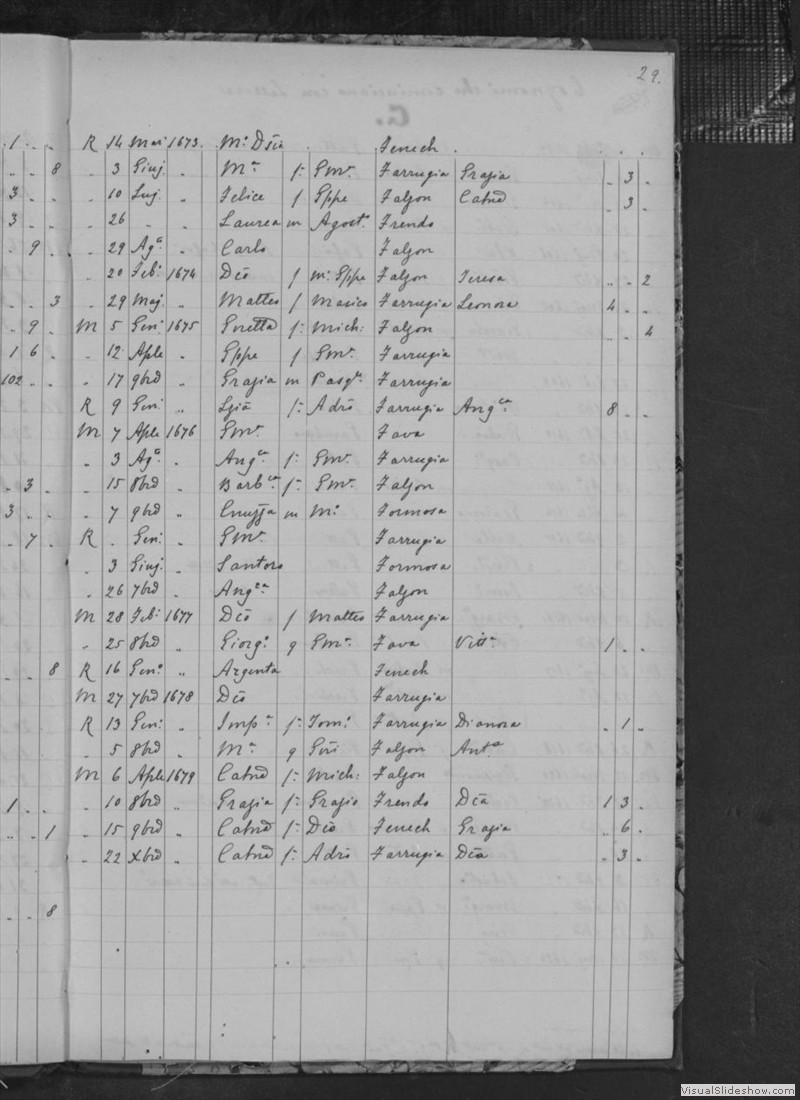 29.
1 . . R 14 Mai 1673. Mª Dcia . Fenech . . . .
. . 8 . 3 Giug. . Mª f: Gmº Farrugia Grazia . 3 .
3 . . . 10 Lug. . Felice f Gppe Falzon Catnā . 3 .
3 . . . 26 . . Laurea m Agostº Frendo
. 9 . . 29 Agº . Carlo Falzon
. 20 Feb: 1674 Dco f mº Gppe Falzon Teresa . . 2
. . 3 . 29 Maj. „ Matteo f Marico Farrugia Leonora 4 . .
. 9 . M 5 Gen: 1675 f: Mich: Falzon . . 4
1 6 . . 12 Aple „ Gppe f Gmº Farrugia
102 . . . 17 9bre „ Grazia m Pasqle Farrugia
R 9 Gen: „ f: Adrō Farrugia Angca 8 . .
M 7 Aple 1676 Gmº Fava
. 3 Agº . Angca f: Gmº Farrugia
. 3 . . 15 8bre . Barbca f: Gmº Falzon
3 . . . 7 9bre . m Mº Formosa
. 7 . R . Gen: „ Gmº Farrugia
. 3 Giug. „ Santoro Formosa
. 26 7bre „ Angca Falzon
M 28 Feb: 1677 Dco f Matteo Farrugia
. 25 8bre „ Giorgº q Gmº Fava Vittª 1 . .
. . 8 R 16 Genº „ Argenta Fenech
M 27 7bre 1678 Dco Farrugia
R 13 Gen: „ Impª f: Tomº Farrugia Dianora . 1 .
. 5 8bre . Mª q Farrugia Antª
M 6 Aple 1679 Catnā f: Mich: Falzon
1 . . . 10 8bre „ Grazia f: Grazio Frendo Dca 1 3 .
. . 1 . 15 9bre „ Catnā f: Dco Fenech Grazia . 6 .
. 22 Xbre „ Catnā f: Adrō Farrugia Dca . 3 .
. . 8
VisualSlideshow.com